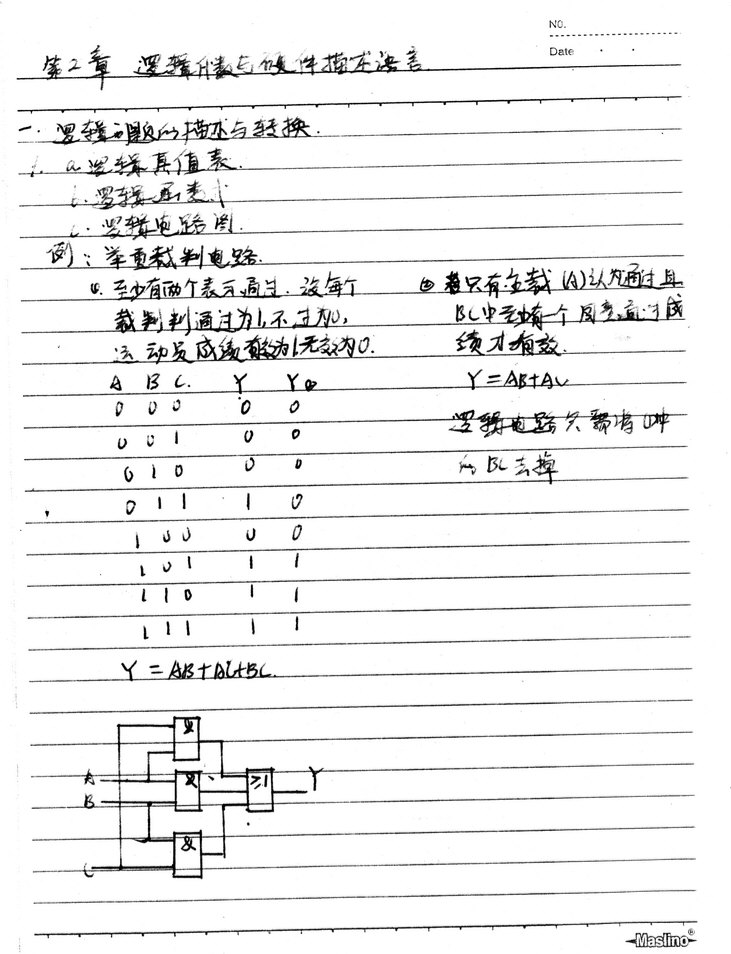 NO.
Date
第2章 逻辑代数与硬件描述语言
一. 逻辑问题的描述与转换.
1. a. 逻辑真值表.
b. 逻辑函数式
c. 逻辑电路图.
例: 举重裁判电路.
至少有两个表示通过. 设每个
裁判判通过为1, 不过为0,
运动员成绩有效为1, 无效为0.
A B C. Y Y②
0 0 0 0 0
0 0 1 0 0
0 1 0 0 0
0 1 1 1 0
1 0 0 0 0
1 0 1 1 1
1 1 0 1 1
1 1 1 1 1
Y = AB+AC+BC.
② 只有主裁 (A) 认为通过且
BC中至少有一个同意通过成
绩才有效.
Y = AB+AC
逻辑电路只需将(1)中
的 BC 去掉
& 
A & ≥1 Y
B
&
C
Maslino®